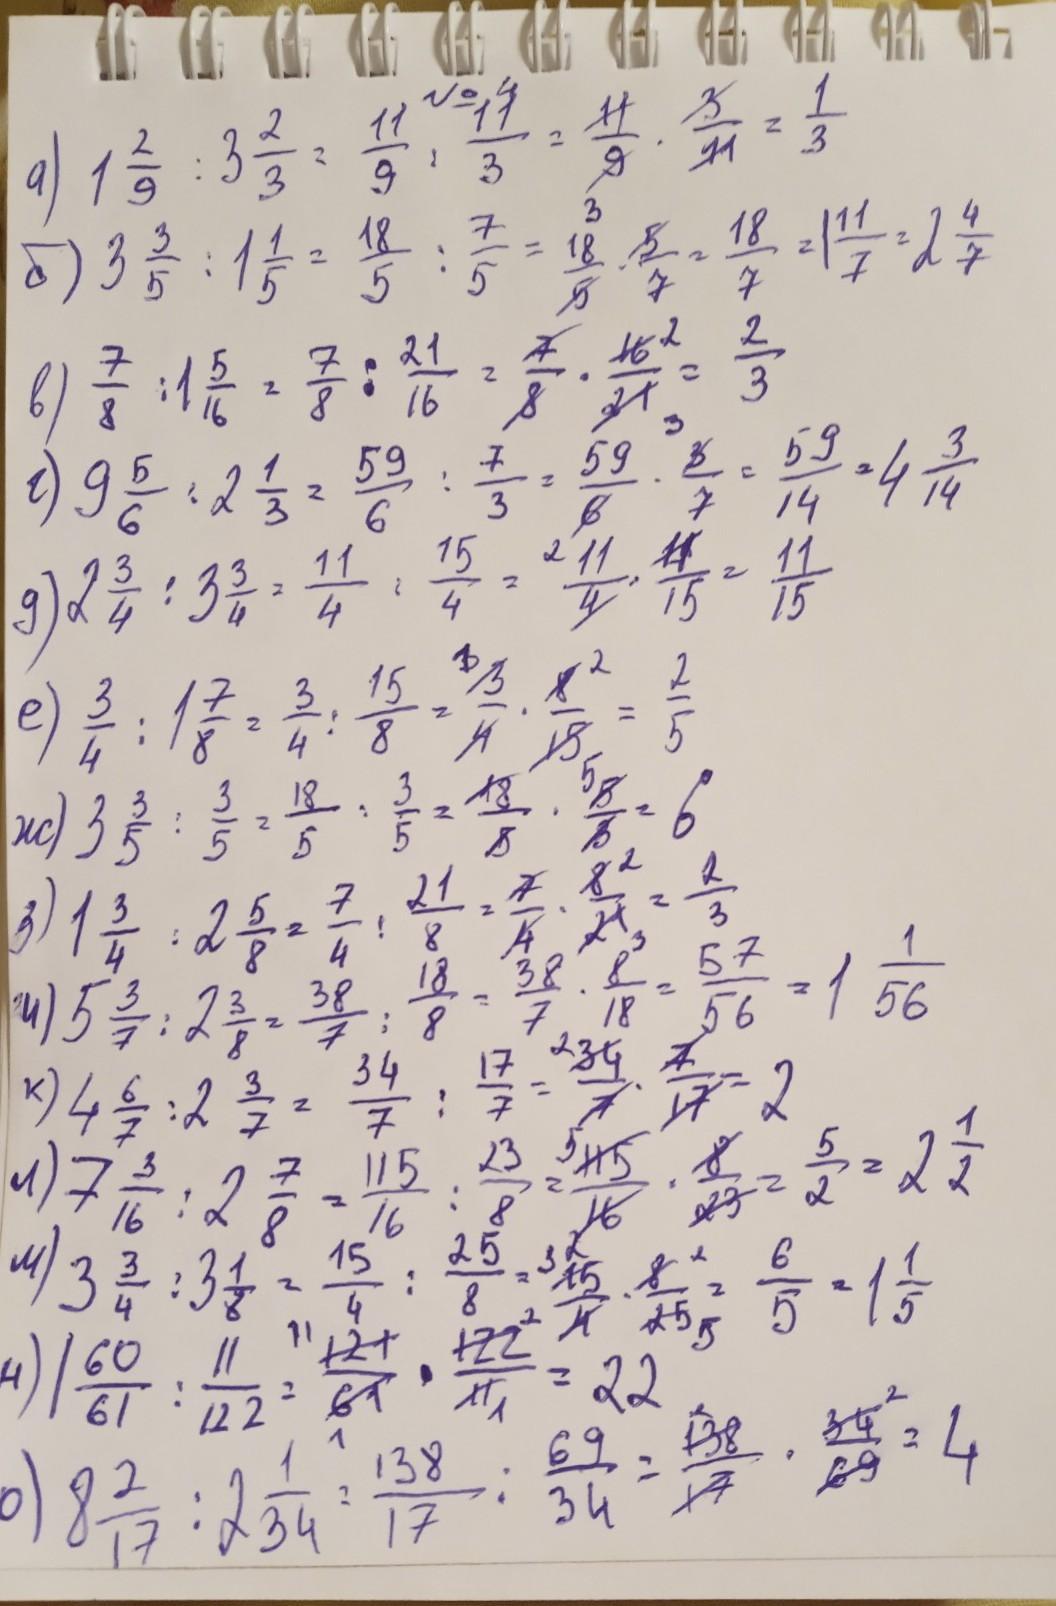 № 4
а) 1 2/9 : 3 2/3 = 11/9 : 11/3 = 11/9 · 3/11 = 1/3
б) 3 3/5 : 1 1/5 = 18/5 : 7/5 = 18/5 · 5/7 = 18/7 = 1 11/7 = 2 4/7
в) 7/8 : 1 5/16 = 7/8 : 21/16 = 7/8 · 16/21 = 2/3
г) 9 5/6 : 2 1/3 = 59/6 : 7/3 = 59/6 · 3/7 = 59/14 = 4 3/14
д) 2 3/4 : 3 3/4 = 11/4 : 15/4 = 11/4 · 4/15 = 11/15
е) 3/4 : 1 7/8 = 3/4 : 15/8 = 3/4 · 8/15 = 2/5
ж) 3 3/5 : 3/5 = 18/5 : 3/5 = 18/5 · 5/3 = 6
з) 1 3/4 : 2 5/8 = 7/4 : 21/8 = 7/4 · 8/21 = 2/3
и) 5 3/7 : 2 3/8 = 38/7 : 18/8 = 38/7 · 8/18 = 57/56 = 1 1/56
к) 4 6/7 : 2 3/7 = 34/7 : 17/7 = 34/7 · 7/17 = 2
л) 7 3/16 : 2 7/8 = 115/16 : 23/8 = 115/16 · 8/23 = 5/2 = 2 1/2
м) 3 3/4 : 3 1/8 = 15/4 : 25/8 = 15/4 · 8/25 = 6/5 = 1 1/5
н) 1 60/61 : 11/122 = 121/61 · 122/11 = 22
о) 8 2/17 : 2 1/34 = 138/17 : 69/34 = 138/17 · 34/69 = 4